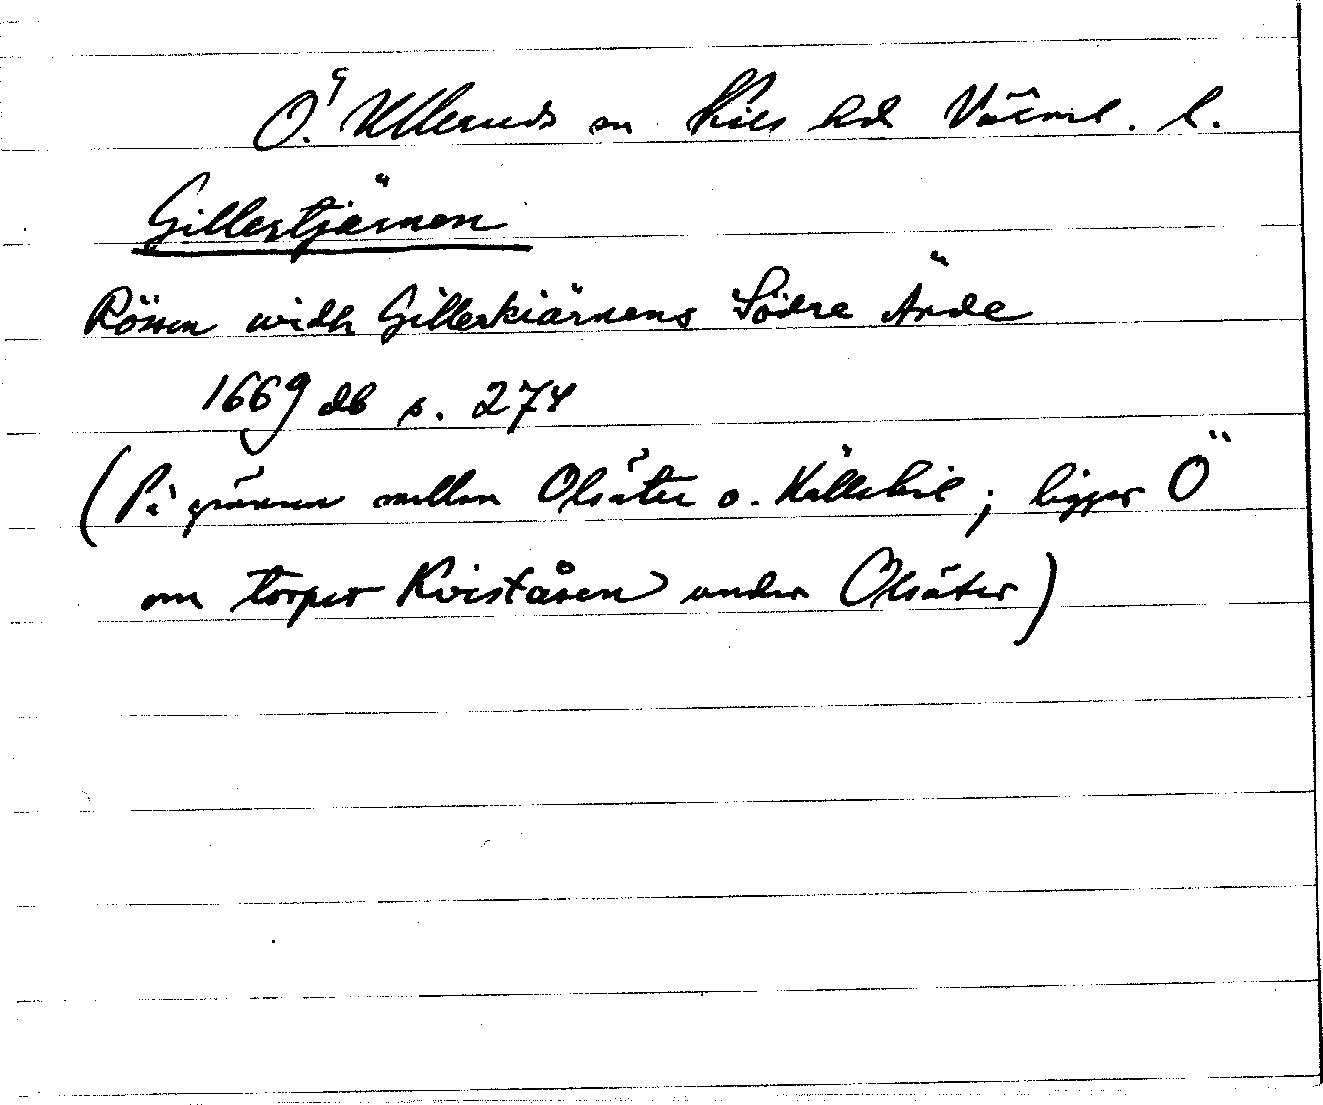 Ö. Ulleruds sn Kils hd Värml. l.
Gillertjärnen
Rösen widh Gillerkiärnens Södre Ände
1669 db s. 274
(På gränsen mellan Olsäter o. Källskil; ligger Ö
om torpet Kviståsen under Olsäter)